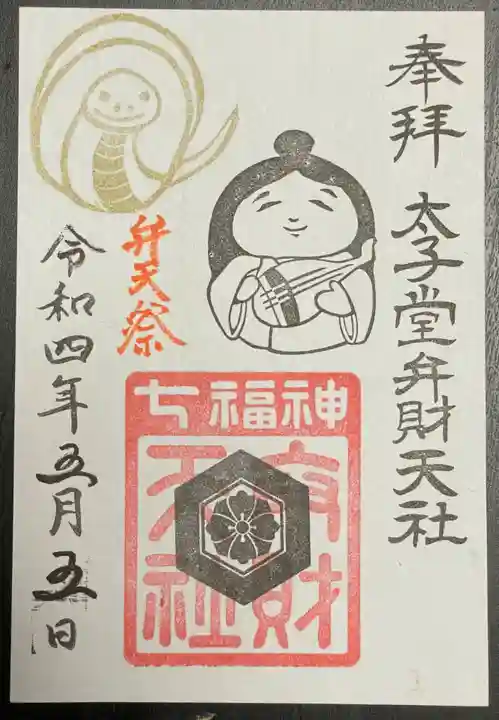 奉拝
太子堂弁財天社
弁天祭
令和四年五月五日
七福神
弁財
天社